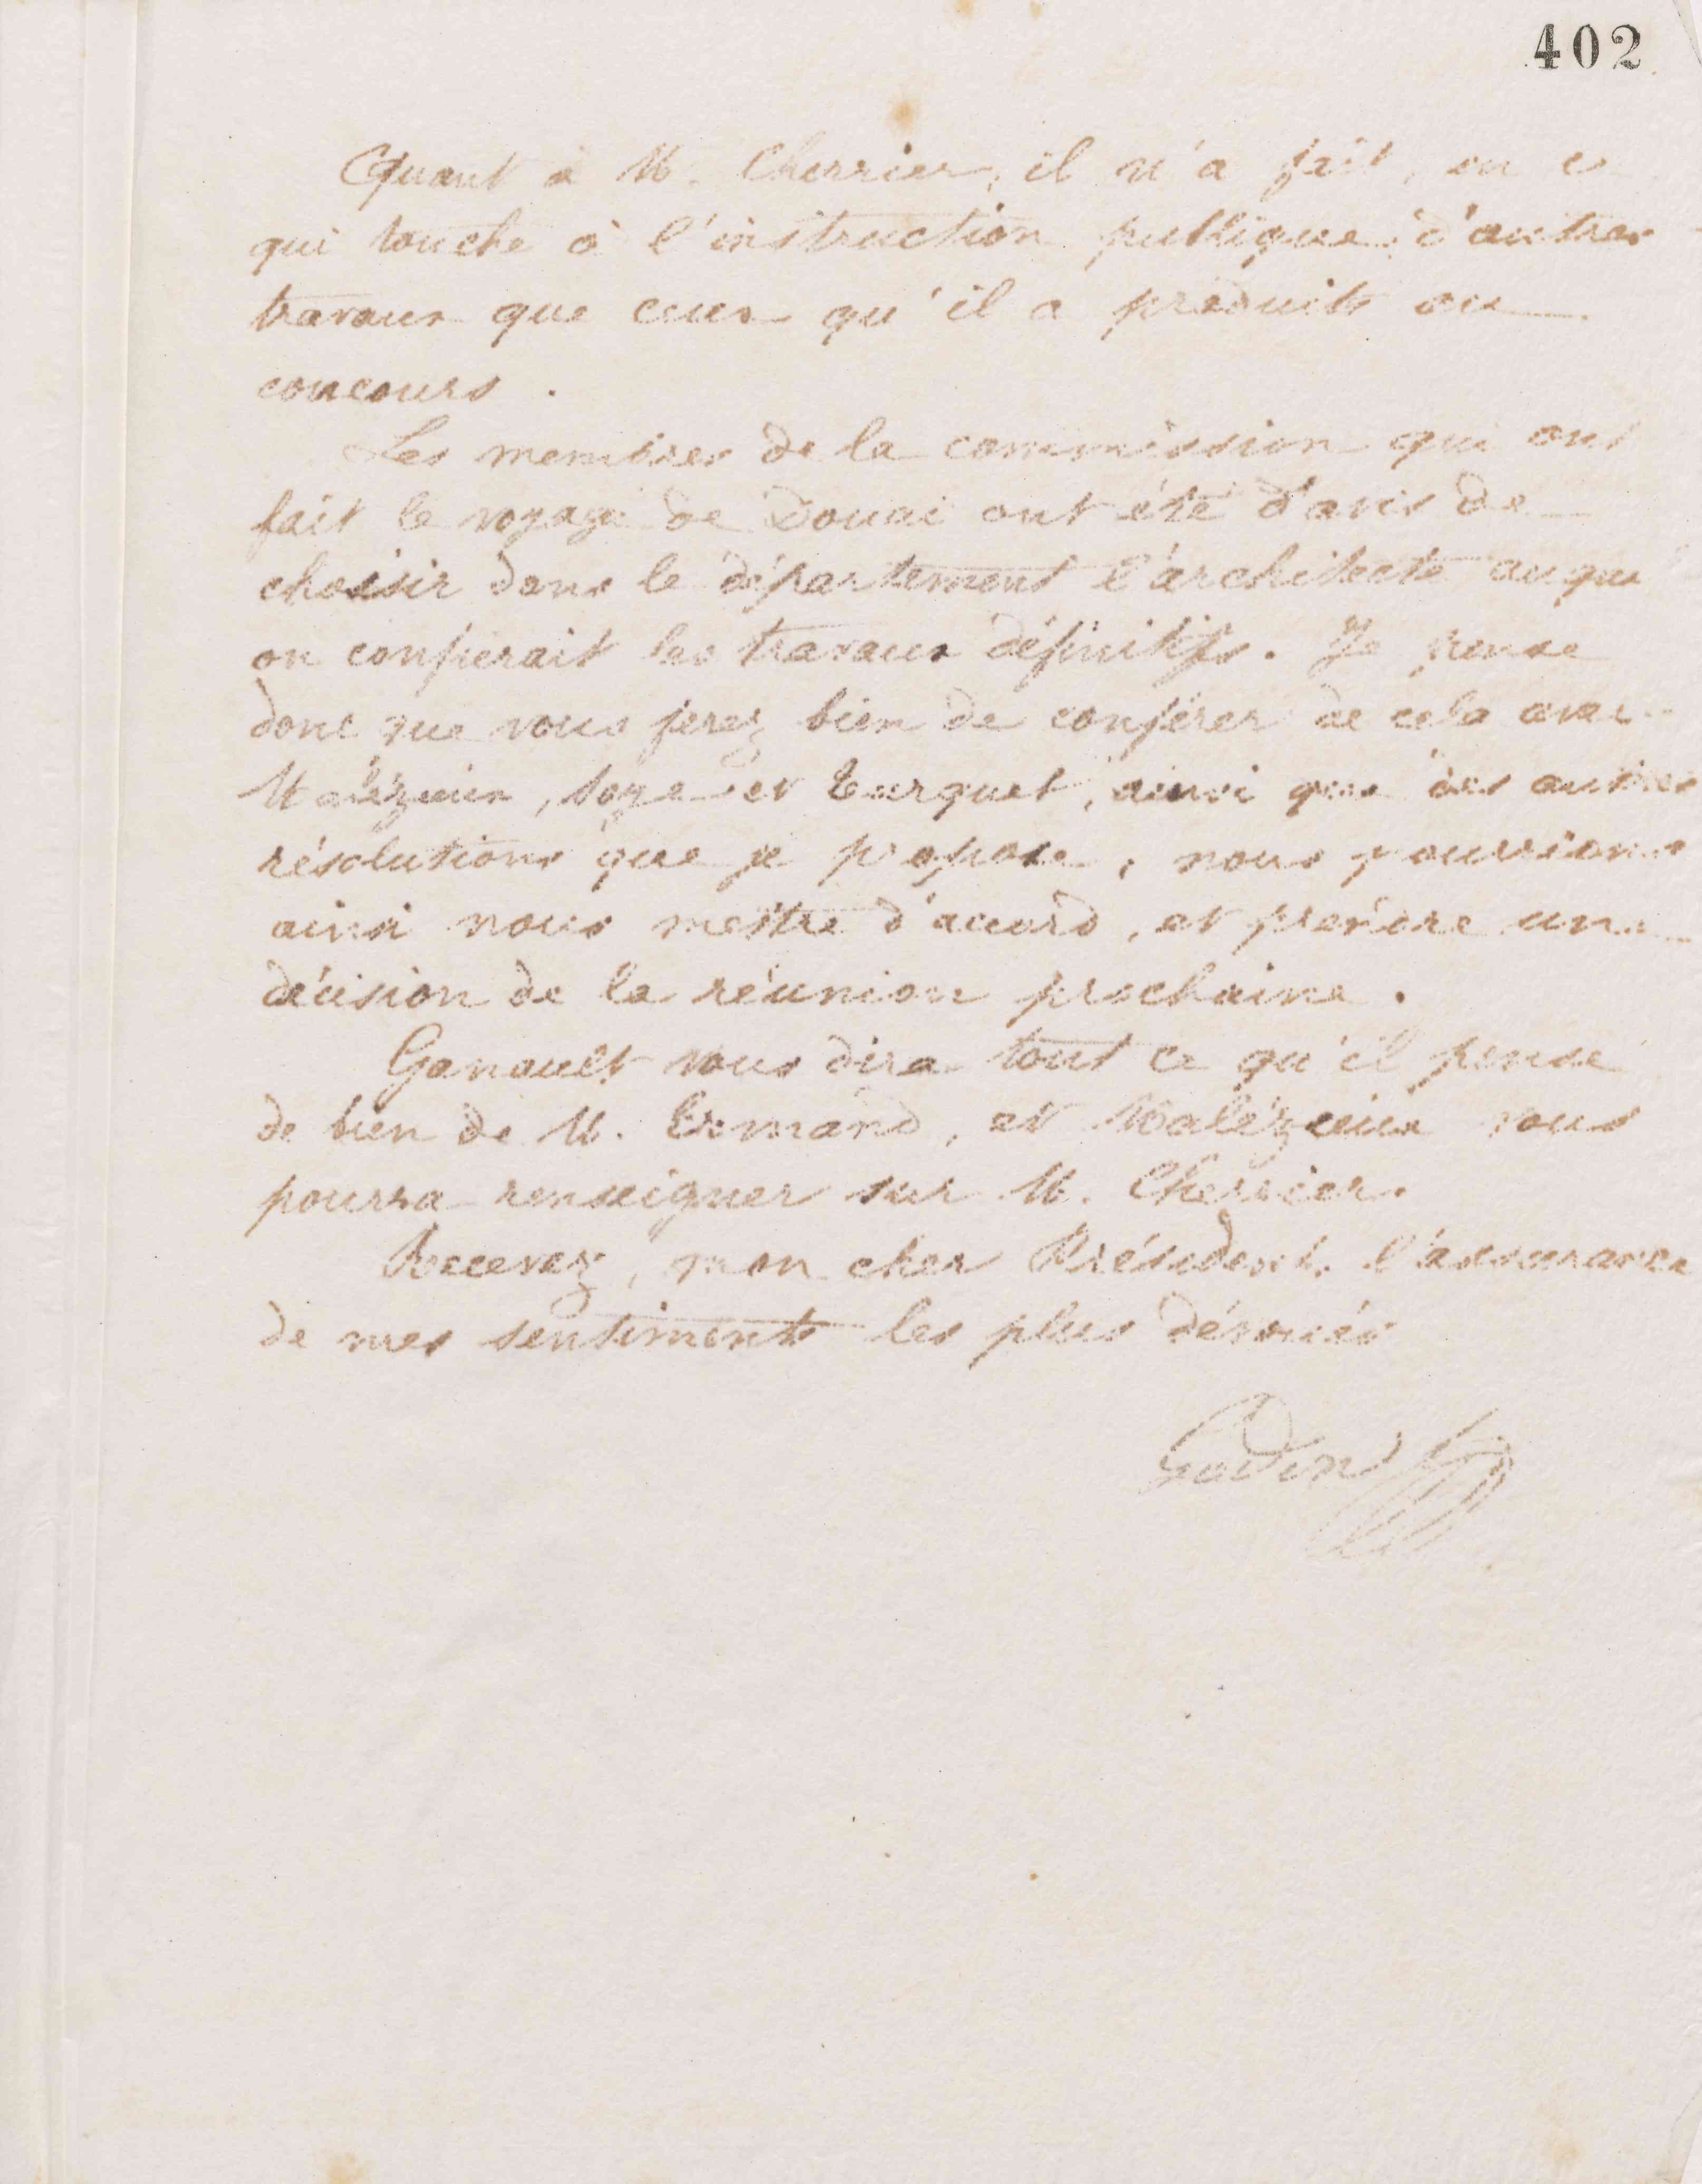 402
Quant à M. Cherrier, il n'a fait, en ce
qui touche à l'instruction publique, d'autres
travaux que ceux qu'il a produits au
concours.
Les membres de la commission qui ont
fait le voyage de Douai ont été d'avis de
choisir dans le département l'architecte auquel
on confierait les travaux définitifs. Je pense
donc que vous ferez bien de conférer de cela avec
Malézieux, Soye et Turquet, ainsi que des autres
résolutions que je propose, nous pourrions
ainsi nous mettre d'accord, et prendre une
décision de la réunion prochaine.
Ganault vous dira tout ce qu'il pense
de bien de M. Ermand, et Malézieux vous
pourra renseigner sur M. Cherrier.
Recevez, mon cher Président, l'assurance
de mes sentiments les plus dévoués
Godin